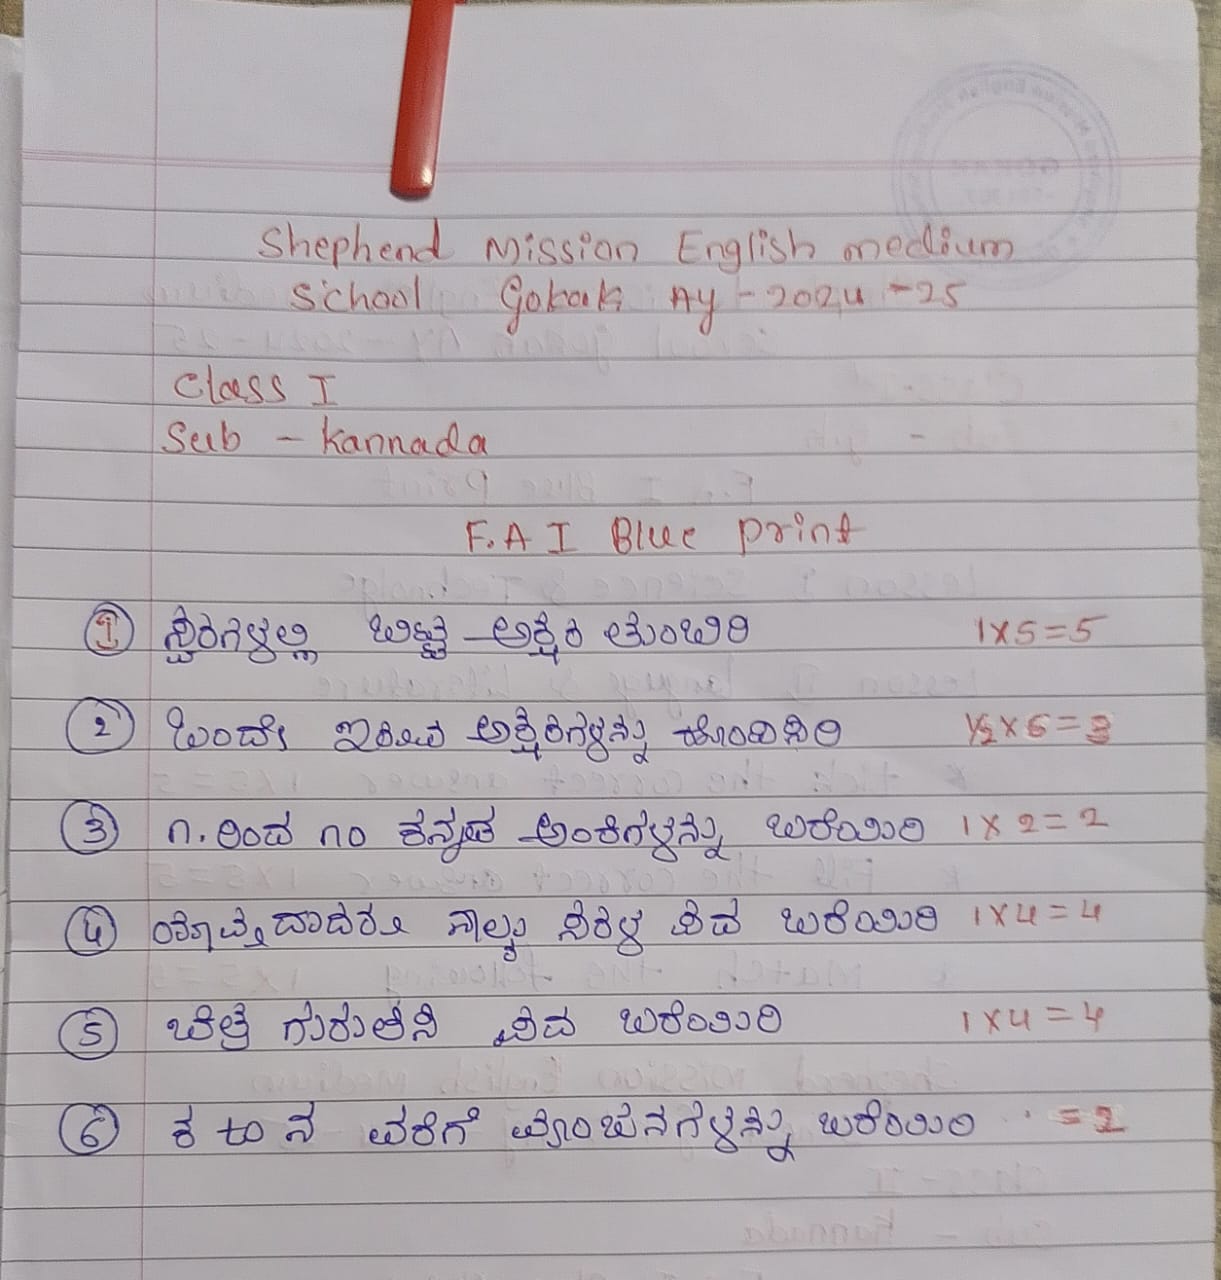 Shephend Mission English medium
School Gokak AY - 2024 - 25
Class I
Sub - Kannada
F.A I Blue Print
① ಸ್ವರಗಳಲ್ಲಿ ಬಿಟ್ಟ ಅಕ್ಷರ ತುಂಬಿರಿ 1x5=5
② ಒಂದೇ ಇರುವ ಅಕ್ಷರಗಳನ್ನು ಹೊಂದಿಸಿರಿ ½x6=3
③ ೧.ರಿಂದ ೧೦ ಕನ್ನಡ ಅಂಕಿಗಳನ್ನು ಬರೆಯಿರಿ 1x2=2
④ ಯಾವುದಾದರೂ ನಾಲ್ಕು ಸರಳ ಪದ ಬರೆಯಿರಿ 1x4=4
⑤ ಚಿತ್ರ ಗುರುತಿಸಿ ಪದ ಬರೆಯಿರಿ 1x4=4
⑥ ಕ to ನ ವರೆಗೆ ವ್ಯಂಜನಗಳನ್ನು ಬರೆಯಿರಿ =2